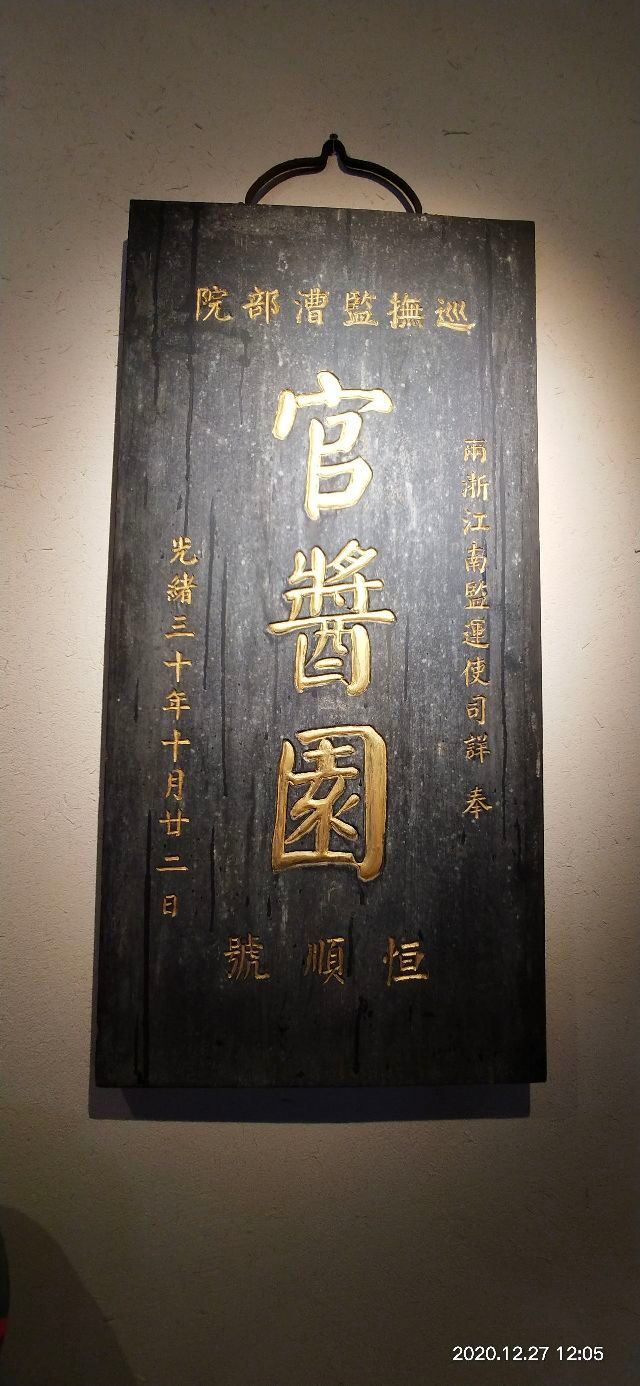 巡撫監漕部院
兩浙江南監運使司詳 奉
官醬園
光緒三十年十月廿二日
恒順號
2020.12.27 12:05